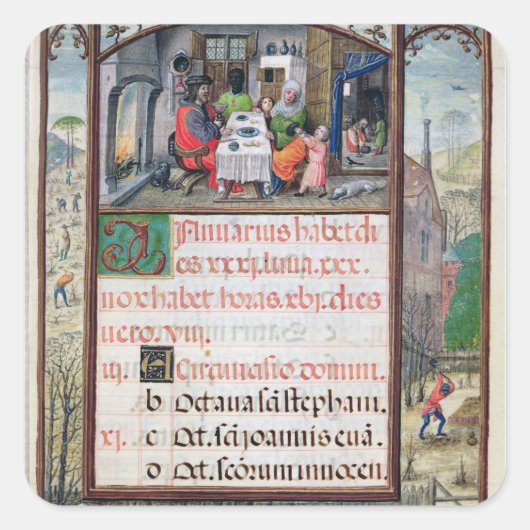 Januarius habet di
es xxxj. luna. xxx.
nox habet horas. xbj. dies
uero. viii.
iij. A Circuncisio domini.
b Octaua scī stephani.
xj. c Oct. scī joannis euā.
d Oct. scōrum innocen.